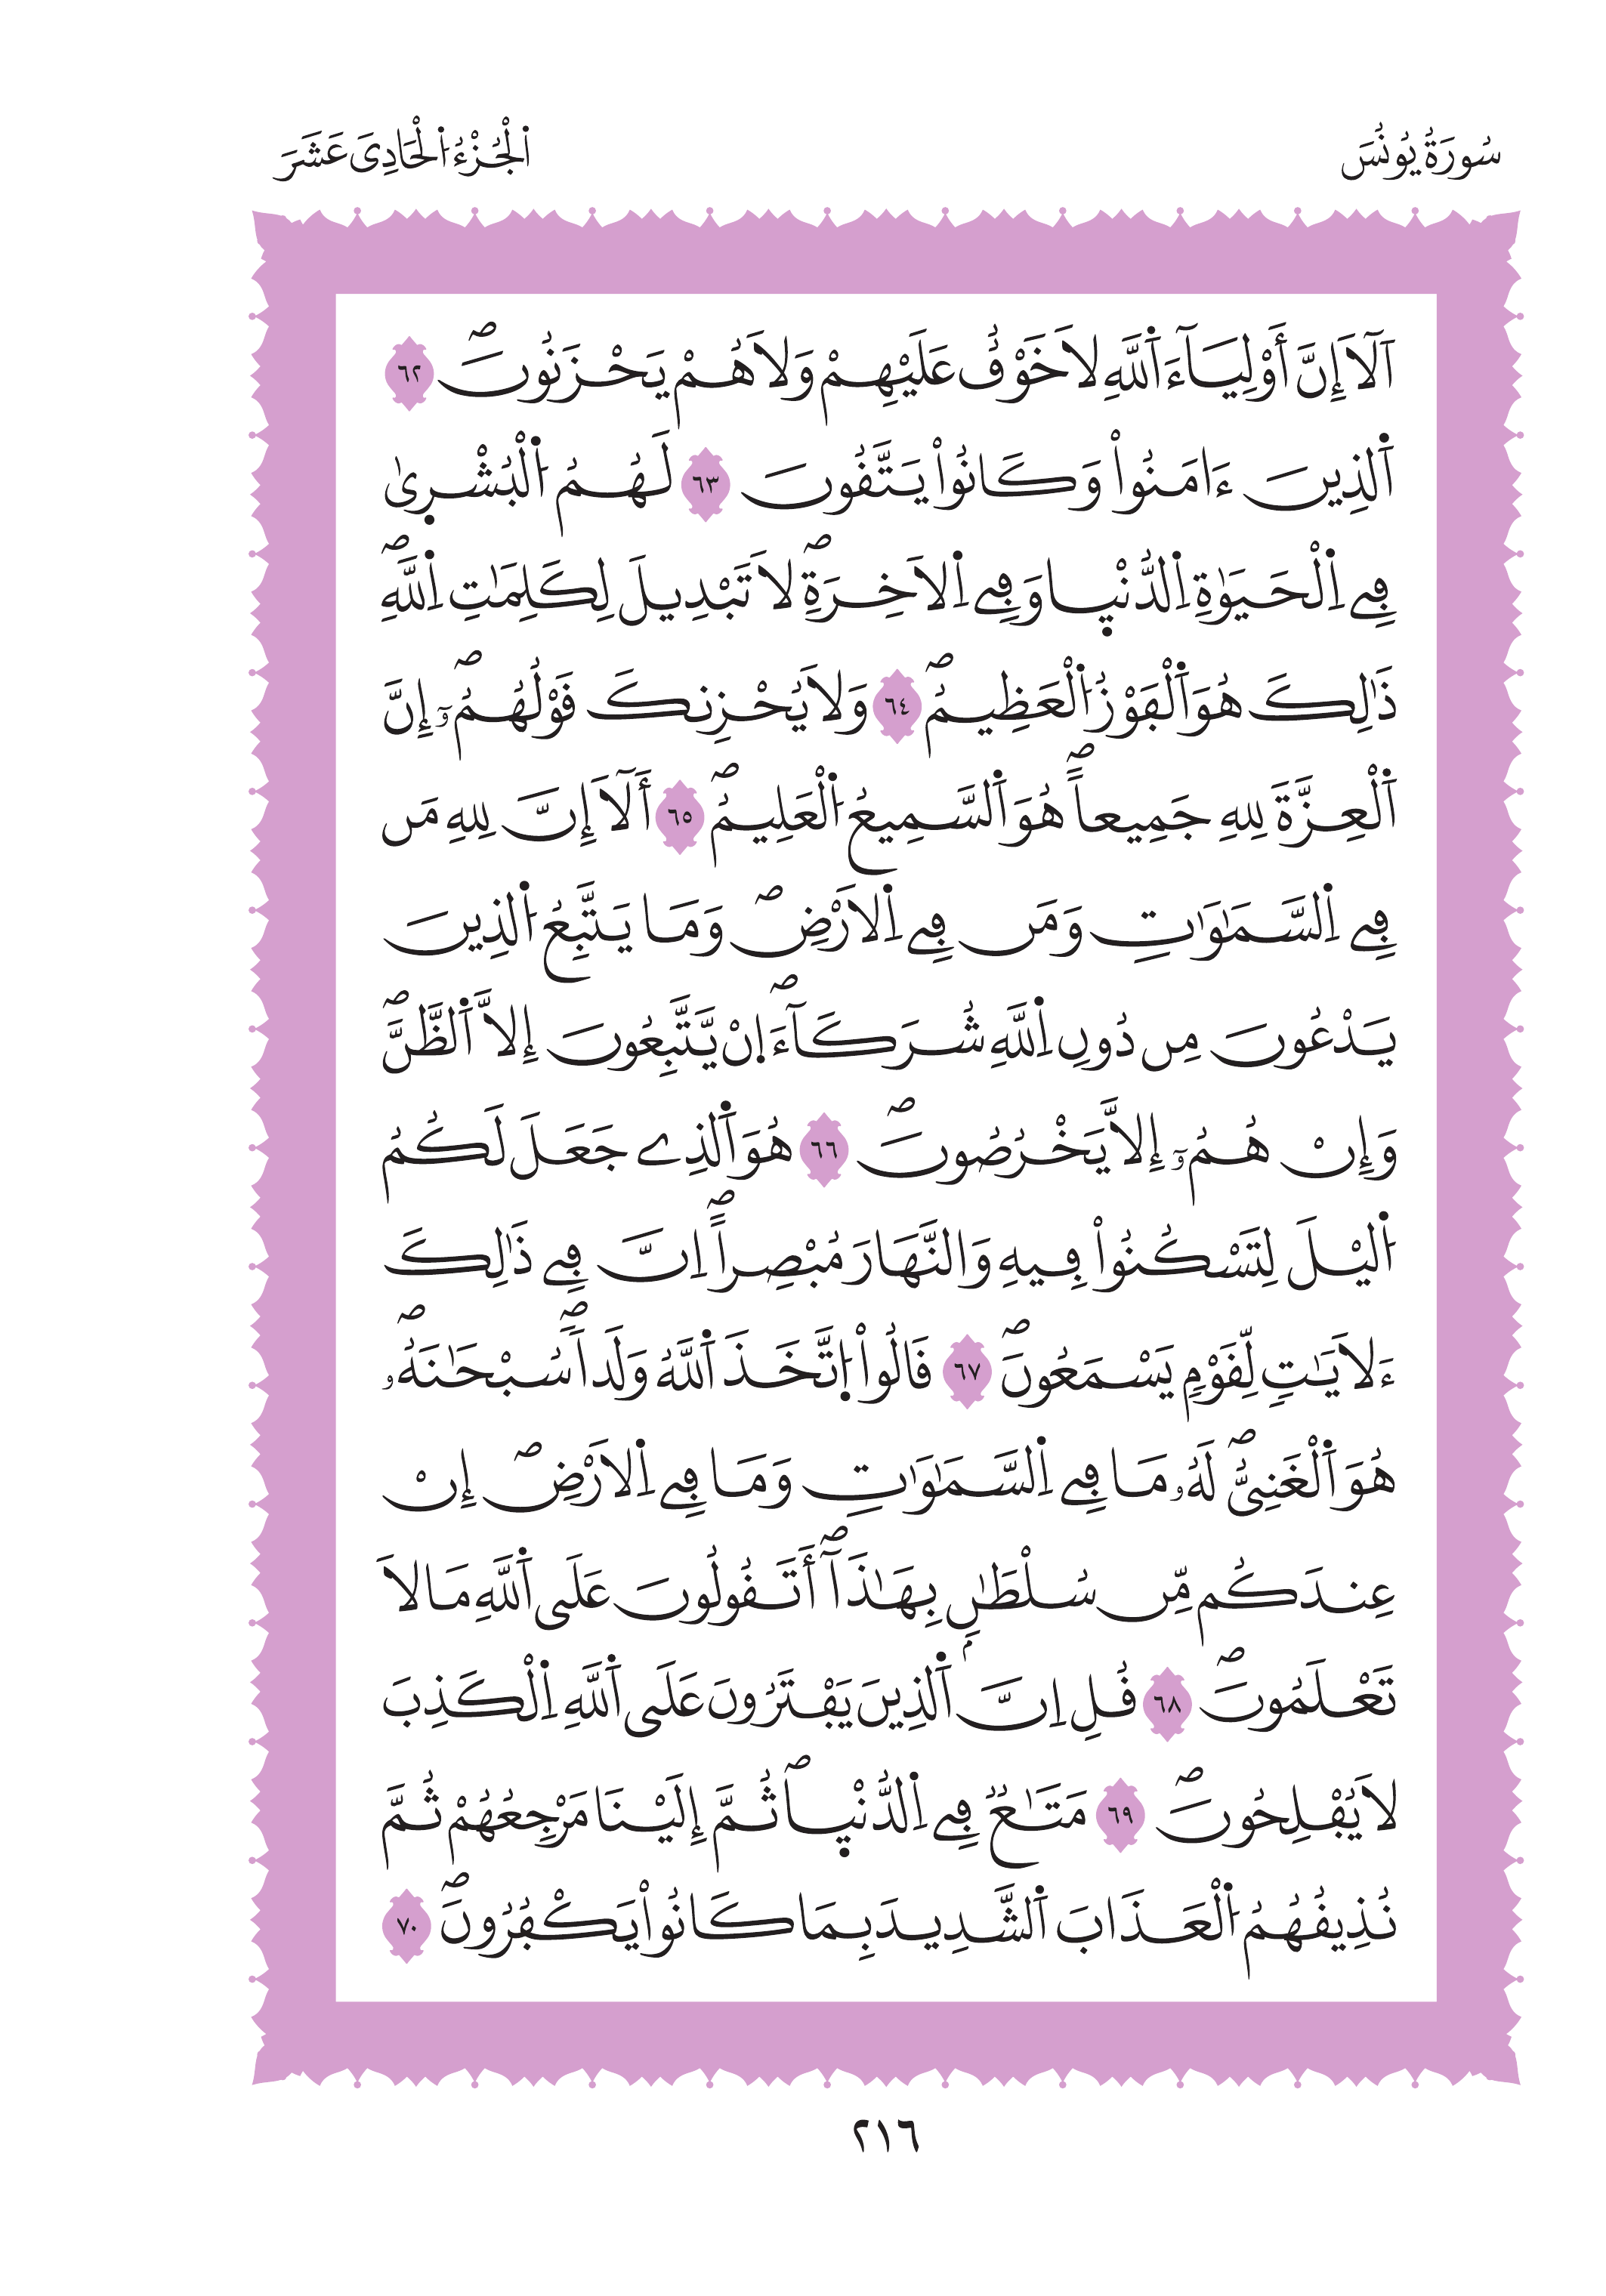 سُورَةُ يُونُسَ
اَ۬لْجُزْءُ اُ۬لْحَادِيَ عَشَرَ
اَلَآ إِنَّ أَوْلِيَآءَ اَ۬للَّهِ لَا خَوْفٌ عَلَيْهِمْ وَلَا هُمْ يَحْزَنُونَۖ ٦٢
اَ۬لذِينَ ءَامَنُواْ وَكَانُواْ يَتَّقُونَ ٦٣ لَهُمُ اُ۬لْبُشْرۭيٰ
فِے اِ۬لْحَيَوٰةِ اِ۬لدُّنْيۭا وَفِے اِ۬لَاخِرَةِۖ لَا تَبْدِيلَ لِكَلِمَٰتِ اِ۬للَّهِۖ
ذَٰلِكَ هُوَ اَ۬لْفَوْزُ اُ۬لْعَظِيمُۖ ٦٤ وَلَا يُحْزِنكَ قَوْلُهُمُۥٓۖ إِنَّ
اَ۬لْعِزَّةَ لِلهِ جَمِيعاًۖ هُوَ اَ۬لسَّمِيعُ اُ۬لْعَلِيمُۖ ٦٥ أَلَآ إِنَّ لِلهِ مَن
فِے اِ۬لسَّمَٰوَٰتِ وَمَن فِے اِ۬لَارْضِۖ وَمَا يَتَّبِعُ اُ۬لذِينَ
يَدْعُونَ مِن دُونِ اِ۬للَّهِ شُرَكَآءَۖ اِنْ يَّتَّبِعُونَ إِلَّا اَ۬لظَّنَّۖ
وَإِنْ هُمُۥٓ إِلَّا يَخْرُصُونَۖ ٦٦ هُوَ اَ۬لذِے جَعَلَ لَكُمُ
اُ۬ليْلَ لِتَسْكُنُواْ فِيهِ وَالنَّهَارَ مُبْصِراًۖ اِنَّ فِے ذَٰلِكَ
ءَلَايَٰتٍ لِّقَوْمٍ يَسْمَعُونَۖ ٦٧ قَالُواْ اُ۪تَّخَذَ اَ۬للَّهُ وَلَداًۖ سُبْحَٰنَهُۥۖ
هُوَ اَ۬لْغَنِيُّۖ لَهُۥ مَا فِے اِ۬لسَّمَٰوَٰتِ وَمَا فِے اِ۬لَارْضِۖ إِنْ
عِندَكُم مِّن سُلْطَٰنِۢ بِهَٰذَآۖ أَتَقُولُونَ عَلَى اَ۬للَّهِ مَا لَا
تَعْلَمُونَۖ ٦٨ قُلِ اِنَّ اَ۬لذِينَ يَفْتَرُونَ عَلَى اَ۬للَّهِ اِ۬لْكَذِبَ
لَا يُفْلِحُونَۖ ٦٩ مَتَٰعٌ فِے اِ۬لدُّنْيۭاۖ ثُمَّ إِلَيْنَا مَرْجِعُهُمْ ثُمَّ
نُذِيقُهُمُ اُ۬لْعَذَابَ اَ۬لشَّدِيدَ بِمَا كَانُواْ يَكْفُرُونَۖ ٧٠
٢١٦